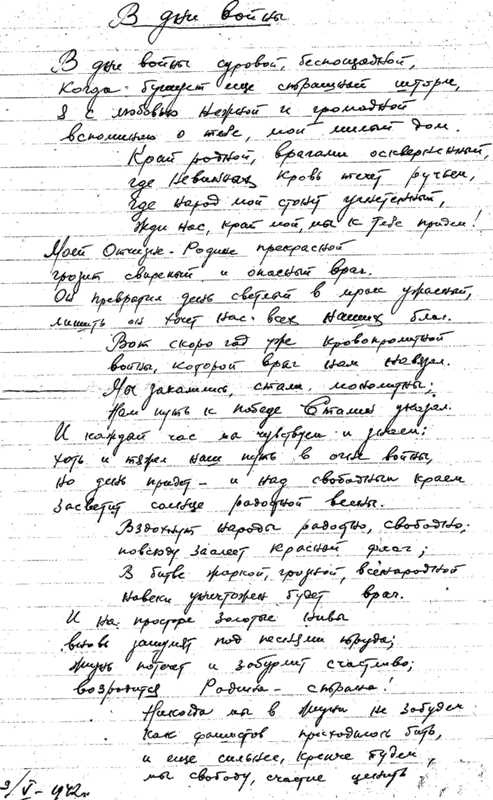 В дни войны
В дни войны суровой, беспощадной,
Когда бушует еще страшный шторм,
Я с любовью нежной и громадной
вспоминаю о тебе, мой милый дом.
Край родной, врагами оскверненный,
где невинная кровь течет ручьем,
где народ мой стонет угнетенный,
Жди нас, край мой, мы к тебе придем!
Моей Отчизне-Родине прекрасной
грозит свирепый и опасный враг.
Он превратил день светлый в мрак ужасный,
лишить он хочет нас всех наших благ.
Вот скоро год уже кровопролитной
войны, которой враг нам навязал.
Мы закалились, стали монолитны;
Нам путь к победе Сталин указал.
И каждый час мы чувствуем и знаем:
хоть и тяжел наш путь в огне войны,
но день придет - и над свободным краем
засветит солнце радостной весны.
Вздохнут народы радостно, свободно;
повсюду заалеет красный флаг;
В битве жаркой, грозной, всенародной
навеки уничтожен будет враг.
И на просторе золотые нивы
вновь зашумят под песнями труда;
жизнь потечет и забурлит счастливо;
возродится Родина - страна!
Никогда мы в жизни не забудем
как фашистов приходилось бить,
и еще сильнее, крепче будем,
мы свободу, счастье ценить
9/V-1942г.